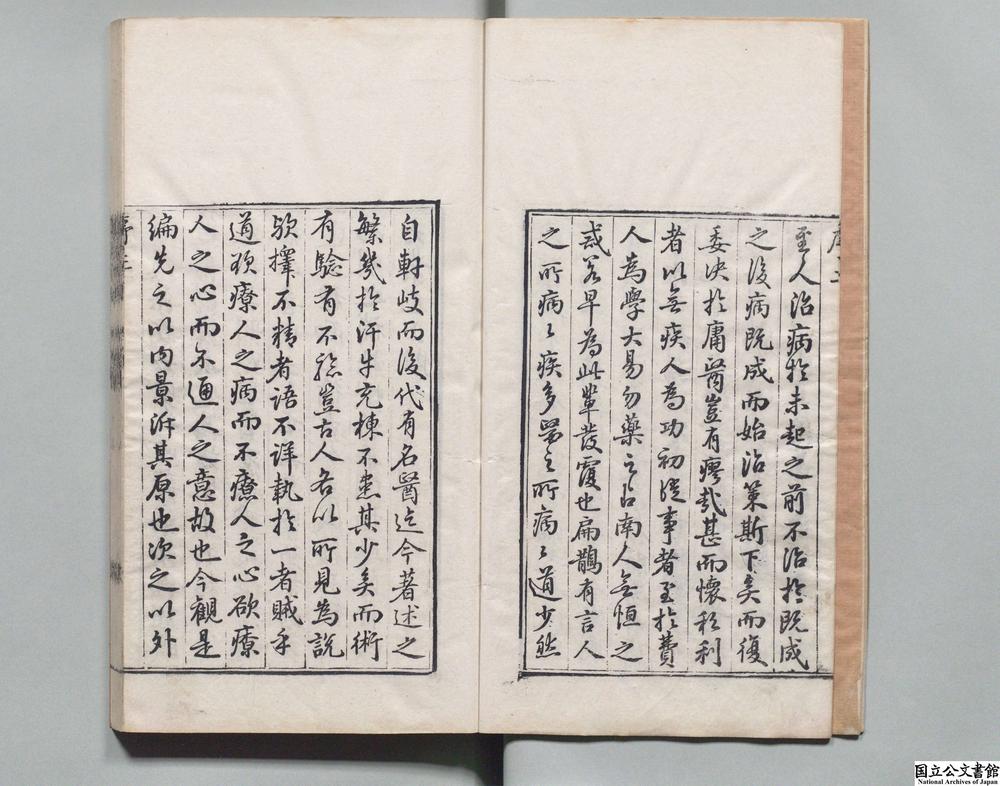 序二
至人治病於未起之前不治於既成
之後病既成而始治策斯下矣而復
委決於庸醫豈有瘳哉甚而懷私利
者以無疾人為功初從事者至於費
人為學大易勿藥之占南人無恒之
或若早為此輩發覆也扁鵲有言人
之所病々疾多醫之所病々道少然
自軒岐而後代有名醫迄今著述之
繁幾於汗牛充棟不患其少矣而術
有驗有不驗豈古人各以所見為說
歟擇不精者語不詳執於一者賊乎
道欲療人之病而不療人之心欲療
人之心而不通人之意故也今觀是
編先之以內景泝其原也次之以外
序三
国立公文書館
National Archives of Japan